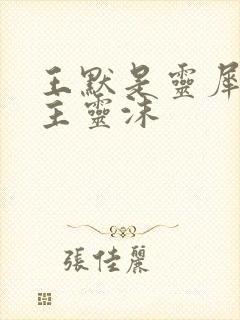 王默是靈犀
主靈沫
張佳麗